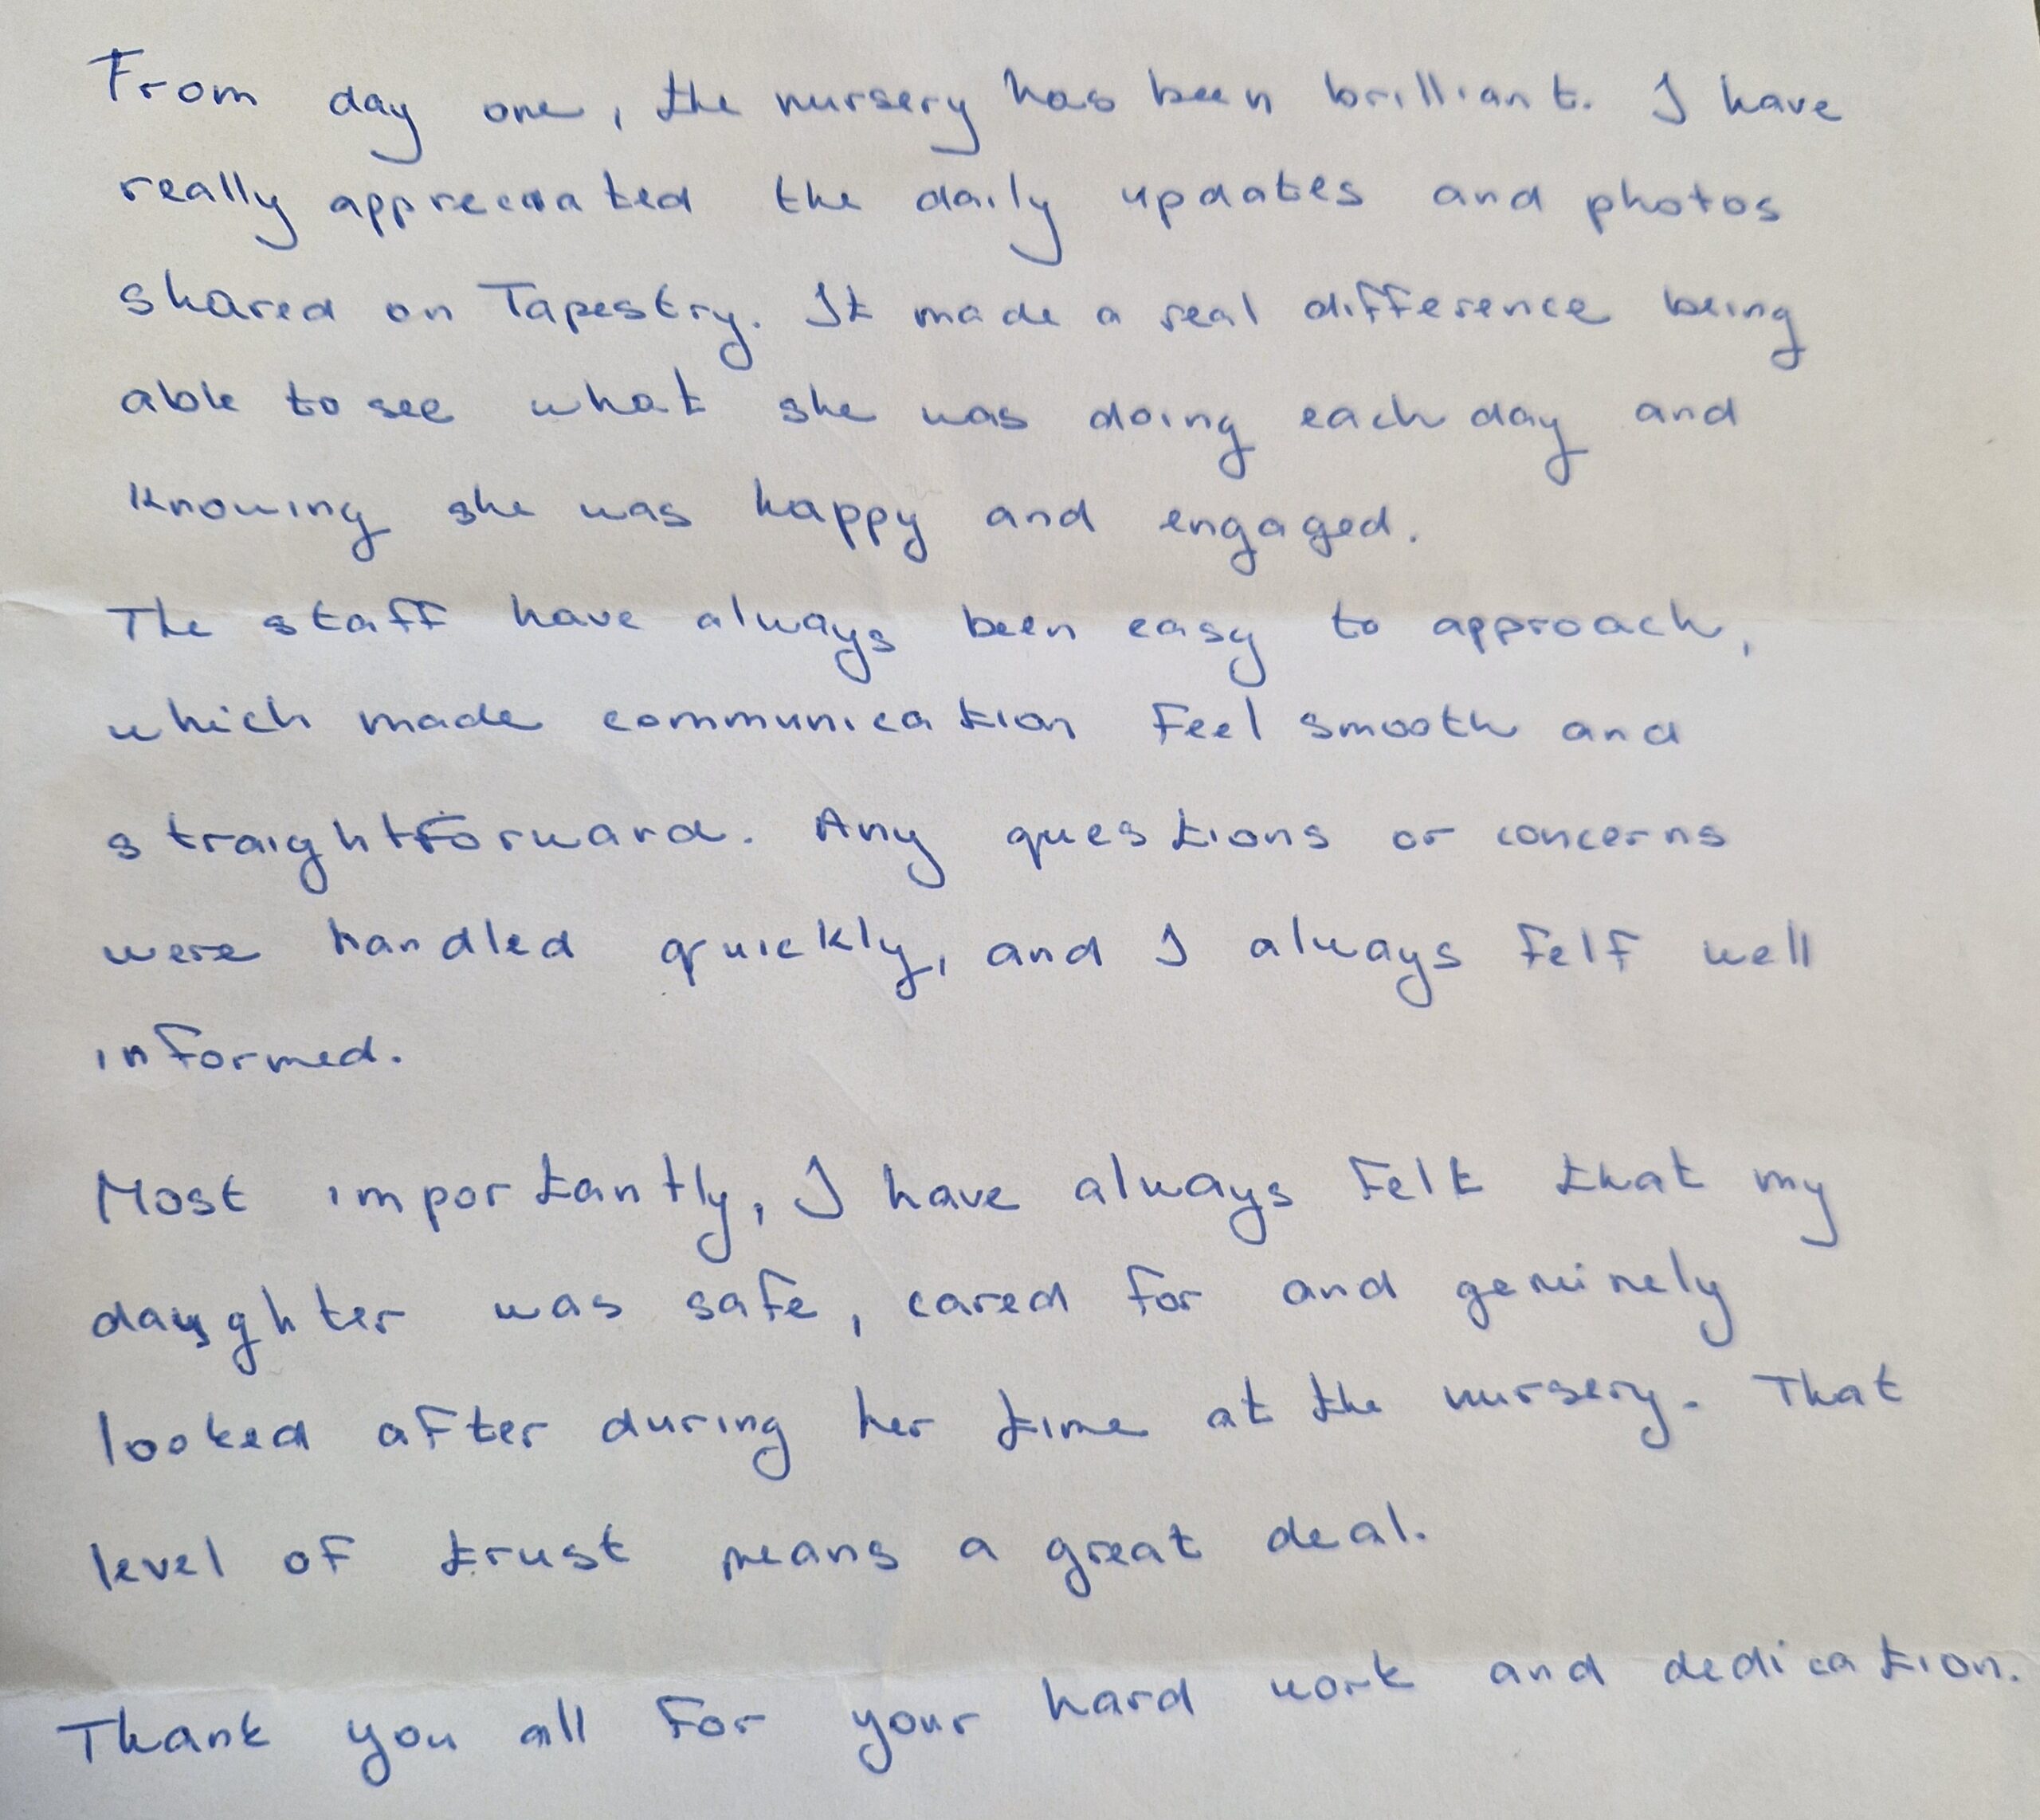 From day one, the nursery has been brilliant. I have
really appreciated the daily updates and photos
shared on Tapestry. It made a real difference being
able to see what she was doing each day and
knowing she was happy and engaged.
The staff have always been easy to approach,
which made communication feel smooth and
straightforward. Any questions or concerns
were handled quickly, and I always felf well
informed.
Most importantly, I have always felt that my
daughter was safe, cared for and genuinely
looked after during her time at the nursery. That
level of trust means a great deal.
Thank you all for your hard work and dedication.